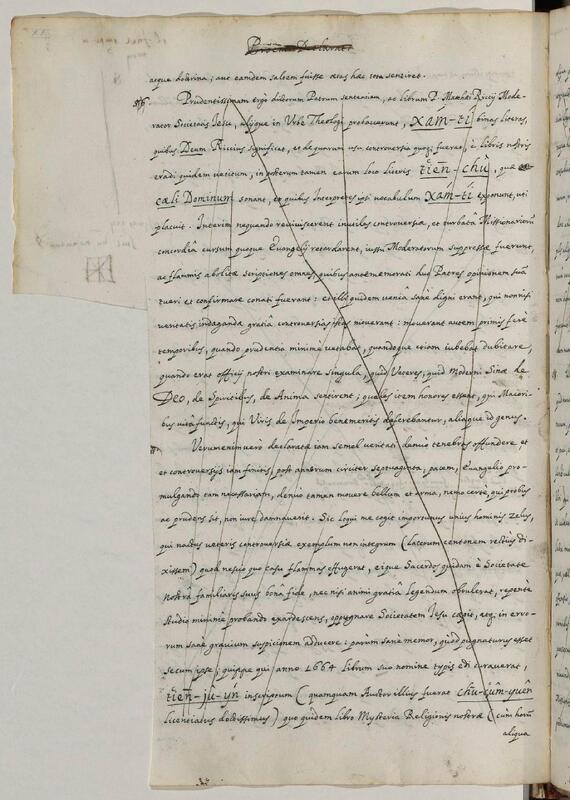 Proëm: Declarat.
atque doctrina; aut eandem saltem fuisse ætas hæc tota sentiret.
Prudentissimam ergo duorum Patrum sententiam, ac librum P. Matthæi Riccij Mode-
rator Societatis Iesu, alijque in Urbe Theologi probaverunt, XAM-TI binas literas,
quibus Deum Riccius significat, et de quarum usu controversia fuerat, è libris nostris
eradi quidem vetitum, in posterum tamen earum loco literis TIEN-CHU, quæ
CÆLI DOMINUM sonant, et quibus Interpretes ipsi vocabulum XAM-TI exponunt, uti
placuit. Interim nequando reviviscerent inutiles controversiæ, et turbatâ Missionariorũ
concordiâ cursum quoque Evangelij retardarent, iussu Moderatorum suppressæ fuerunt,
ac flammis abolitæ scriptiones omnes, quibus antememorati duo Patres opinionem suã
tueri et confirmare conati fuerant: et illi quidem veniâ sanè digni erant, qui non nisi
veritatis indagandæ gratiâ controversias istas moverant: moverant autem primis ferè
temporibus, quando prudentia minimè vetabat, quandoque etiam iubebat dubitare,
quando erat officij nostri examinare singula, quid Veteres, quid Moderni Sinæ de
DEO, de Spiritibus, de Animâ sentirent; quales item honores essent, qui Maiori-
bus vitâ functis, qui Viris de Imperio benemeritis deferebantur, aliaque id genus.
Verumenimvero declaratæ iam semel veritati denuo tenebras offundere, et
et controversijs iam finitis, post annorum circiter septuaginta, pacem, Evangelio pro-
mulgando tam necessariam, denuo tamen movere bellum et arma, nemo certè, qui probus
ac prudens sit, non iure damnaverit. Sic loqui me cogit importunus unius hominis zelus,
qui nactus veteris controversiæ exemplum non integrum (lacerum centonem rectius di-
xissem) quod nescio quo casu flammas effugerat, eique Sacerdos quidam è Societate
nostrâ familiaris suus bonâ fide, nec nisi animi gratiâ legendum obtulerat, repentè
studio minimè probando exardescens, oppugnare Societatem Iesu cæpit, atq; in erro-
rum sanè gravium suspicionem adducere: parùm sanè memor, quòd pugnaturus esset
secum ipse; quippe qui anno 1664 librum suo nomine typis edi curaverat,
TIEN-JU-YN inscriptum (quamquam Auctor illius fuerat CHU-CUM-YUEN
licenciatus doctissimus) quo quidem libro Mysteria Religionis nostræ (cùm horũ
aliqua